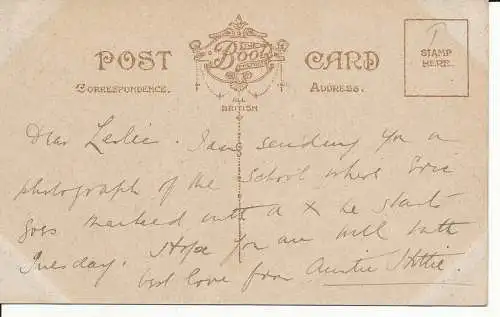 POST CARD
THE
Boots
CORRESPONDENCE.
ALL
BRITISH
ADDRESS.
STAMP
HERE.
Dear Leslie. I am sending you a
photograph of the school where Eric
goes marked with a x he starts
Tuesday. Hope you are well with
best love from Auntie Hettie.